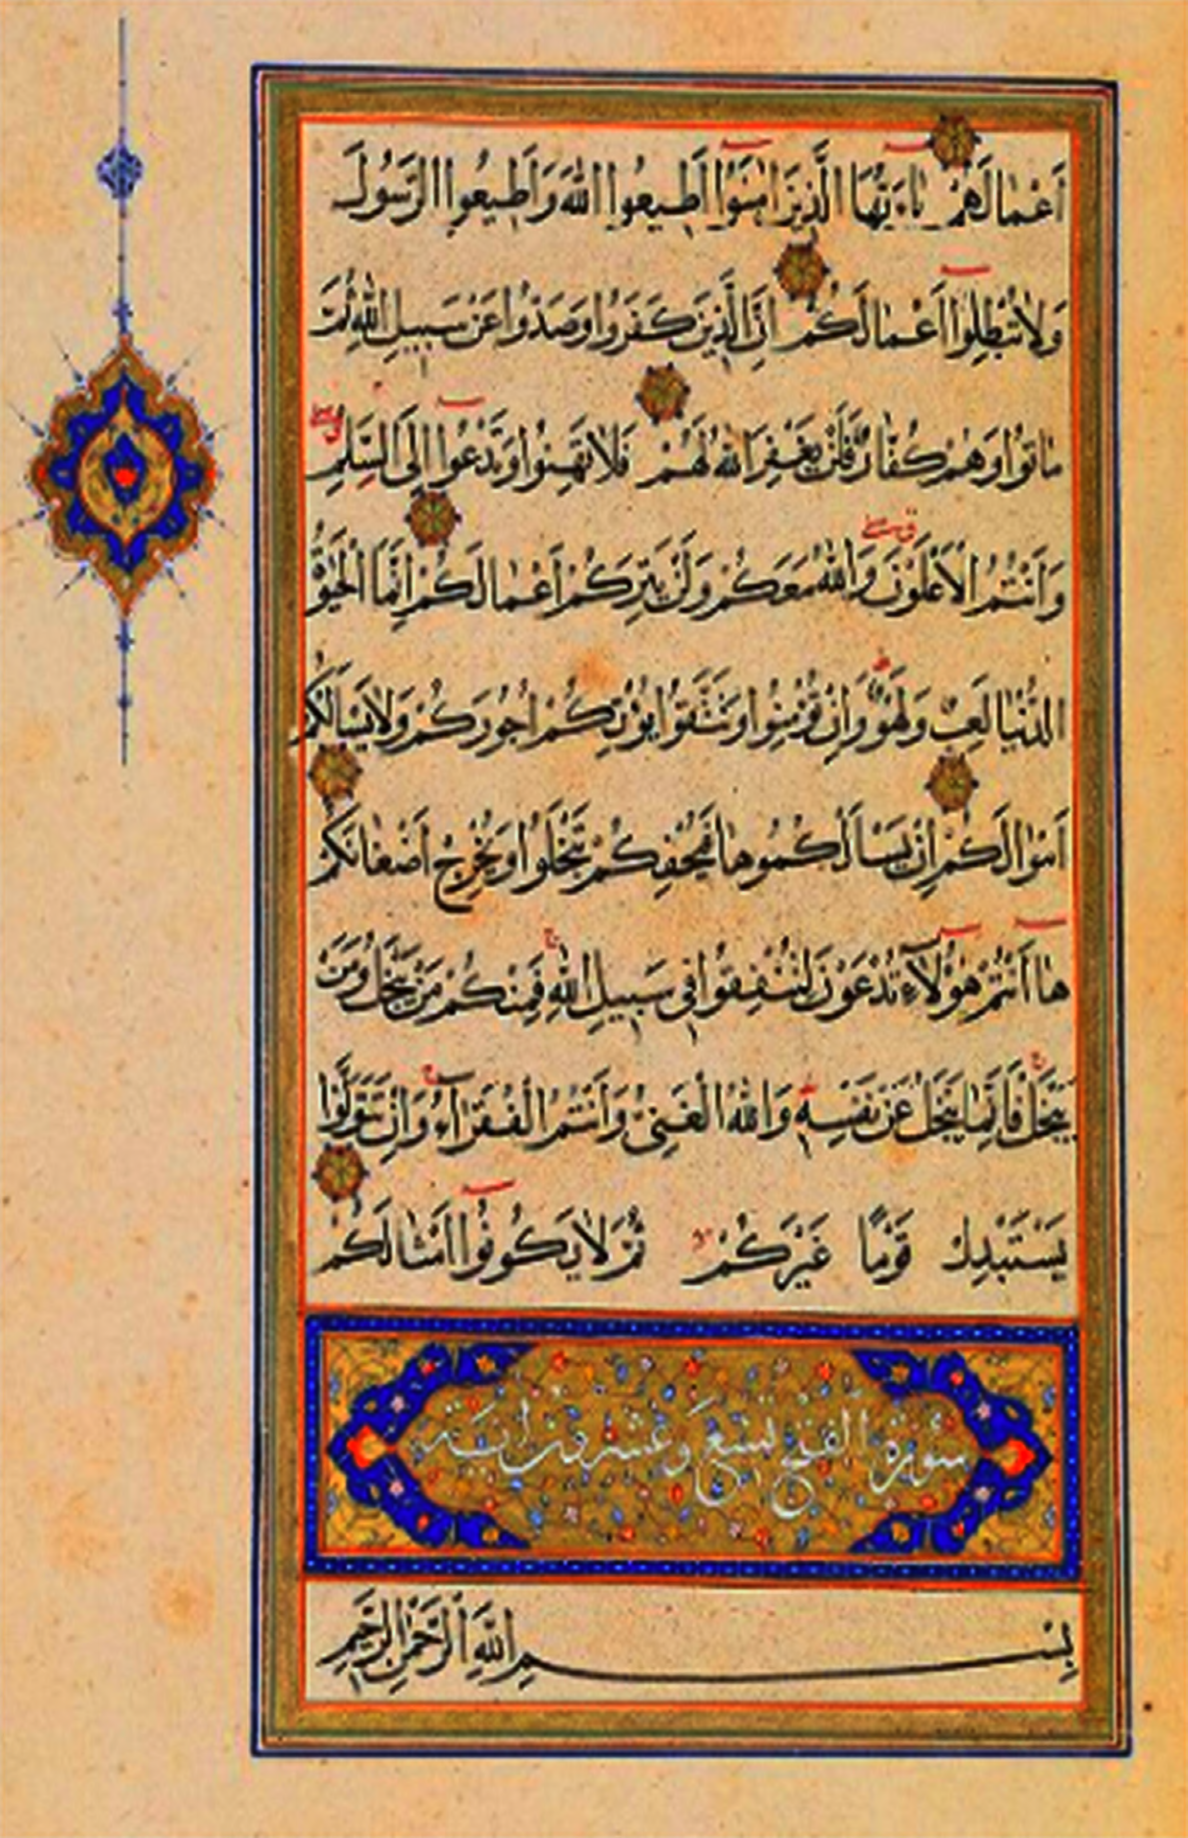 أَعْمَالَهُمْ يَاءَيُّهَا الَّذِينَ امَنُوا أَطِيعُوا اللّٰهَ وَأَطِيعُوا الرَّسُولَ
وَلَا تُبْطِلُوا أَعْمَالَكُمْ إِنَّ الَّذِينَ كَفَرُوا وَصَدُّوا عَنْ سَبِيلِ اللّٰهِ ثُمَّ
مَاتُوا وَهُمْ كُفَّارٌ فَلَنْ يَغْفِرَ اللّٰهُ لَهُمْ فَلَا تَهِنُوا وَتَدْعُوا إِلَى السَّلْمِ
وَأَنْتُمُ الْأَعْلَوْنَ وَاللّٰهُ مَعَكُمْ وَلَنْ يَتِرَكُمْ أَعْمَالَكُمْ إِنَّمَا الْحَيٰوةُ
الدُّنْيَا لَعِبٌ وَلَهْوٌ وَإِنْ تُؤْمِنُوا وَتَتَّقُوا يُؤْتِكُمْ أُجُورَكُمْ وَلَا يَسْأَلْكُمْ
أَمْوَالَكُمْ إِنْ يَسْأَلْكُمُوهَا فَيُحْفِكُمْ تَبْخَلُوا وَيُخْرِجْ أَضْغَانَكُمْ
هَا أَنْتُمْ هٰؤُلَاءِ تُدْعَوْنَ لِتُنْفِقُوا فِي سَبِيلِ اللّٰهِ فَمِنْكُمْ مَنْ يَبْخَلُ وَمَنْ
يَبْخَلْ فَإِنَّمَا يَبْخَلُ عَنْ نَفْسِهِ وَاللّٰهُ الْغَنِيُّ وَأَنْتُمُ الْفُقَرَاءُ وَإِنْ تَتَوَلَّوْا
يَسْتَبْدِلْ قَوْمًا غَيْرَكُمْ ثُمَّ لَا يَكُونُوا أَمْثَالَكُمْ
سورة الفتح تسع وعشرون اية
بِسْمِ اللّٰهِ الرَّحْمٰنِ الرَّحِيمِ